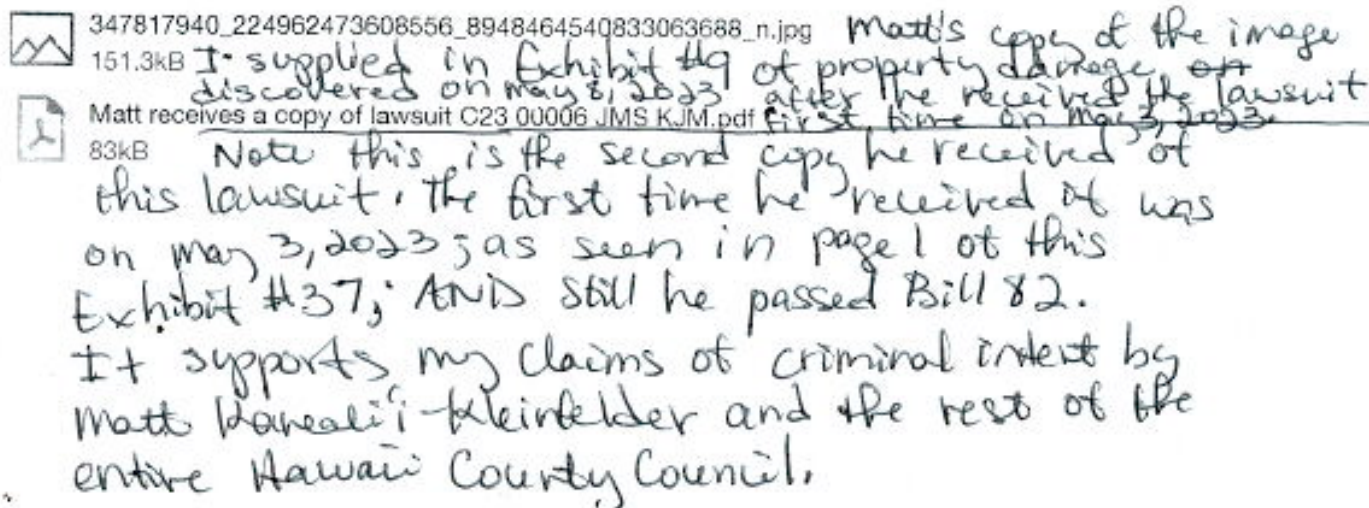 347817940_224962473608556_8948464540833063688_n.jpg Matt's copy of the image
151.3kB I supplied in Exhibit #9 of property damage on
discovered on May 8, 2023 after he received the lawsuit
Matt receives a copy of lawsuit C23 00006 JMS KJM.pdf first time on May 3, 2023.
83kB Note this is the second copy he received of
this lawsuit. The first time he received it was
on May 3, 2023; as seen in page 1 of this
Exhibit #37; AND still he passed Bill 82.
It supports my claims of criminal intent by
Matt Kaneali'i-Kleinfelder and the rest of the
entire Hawaii County Council.